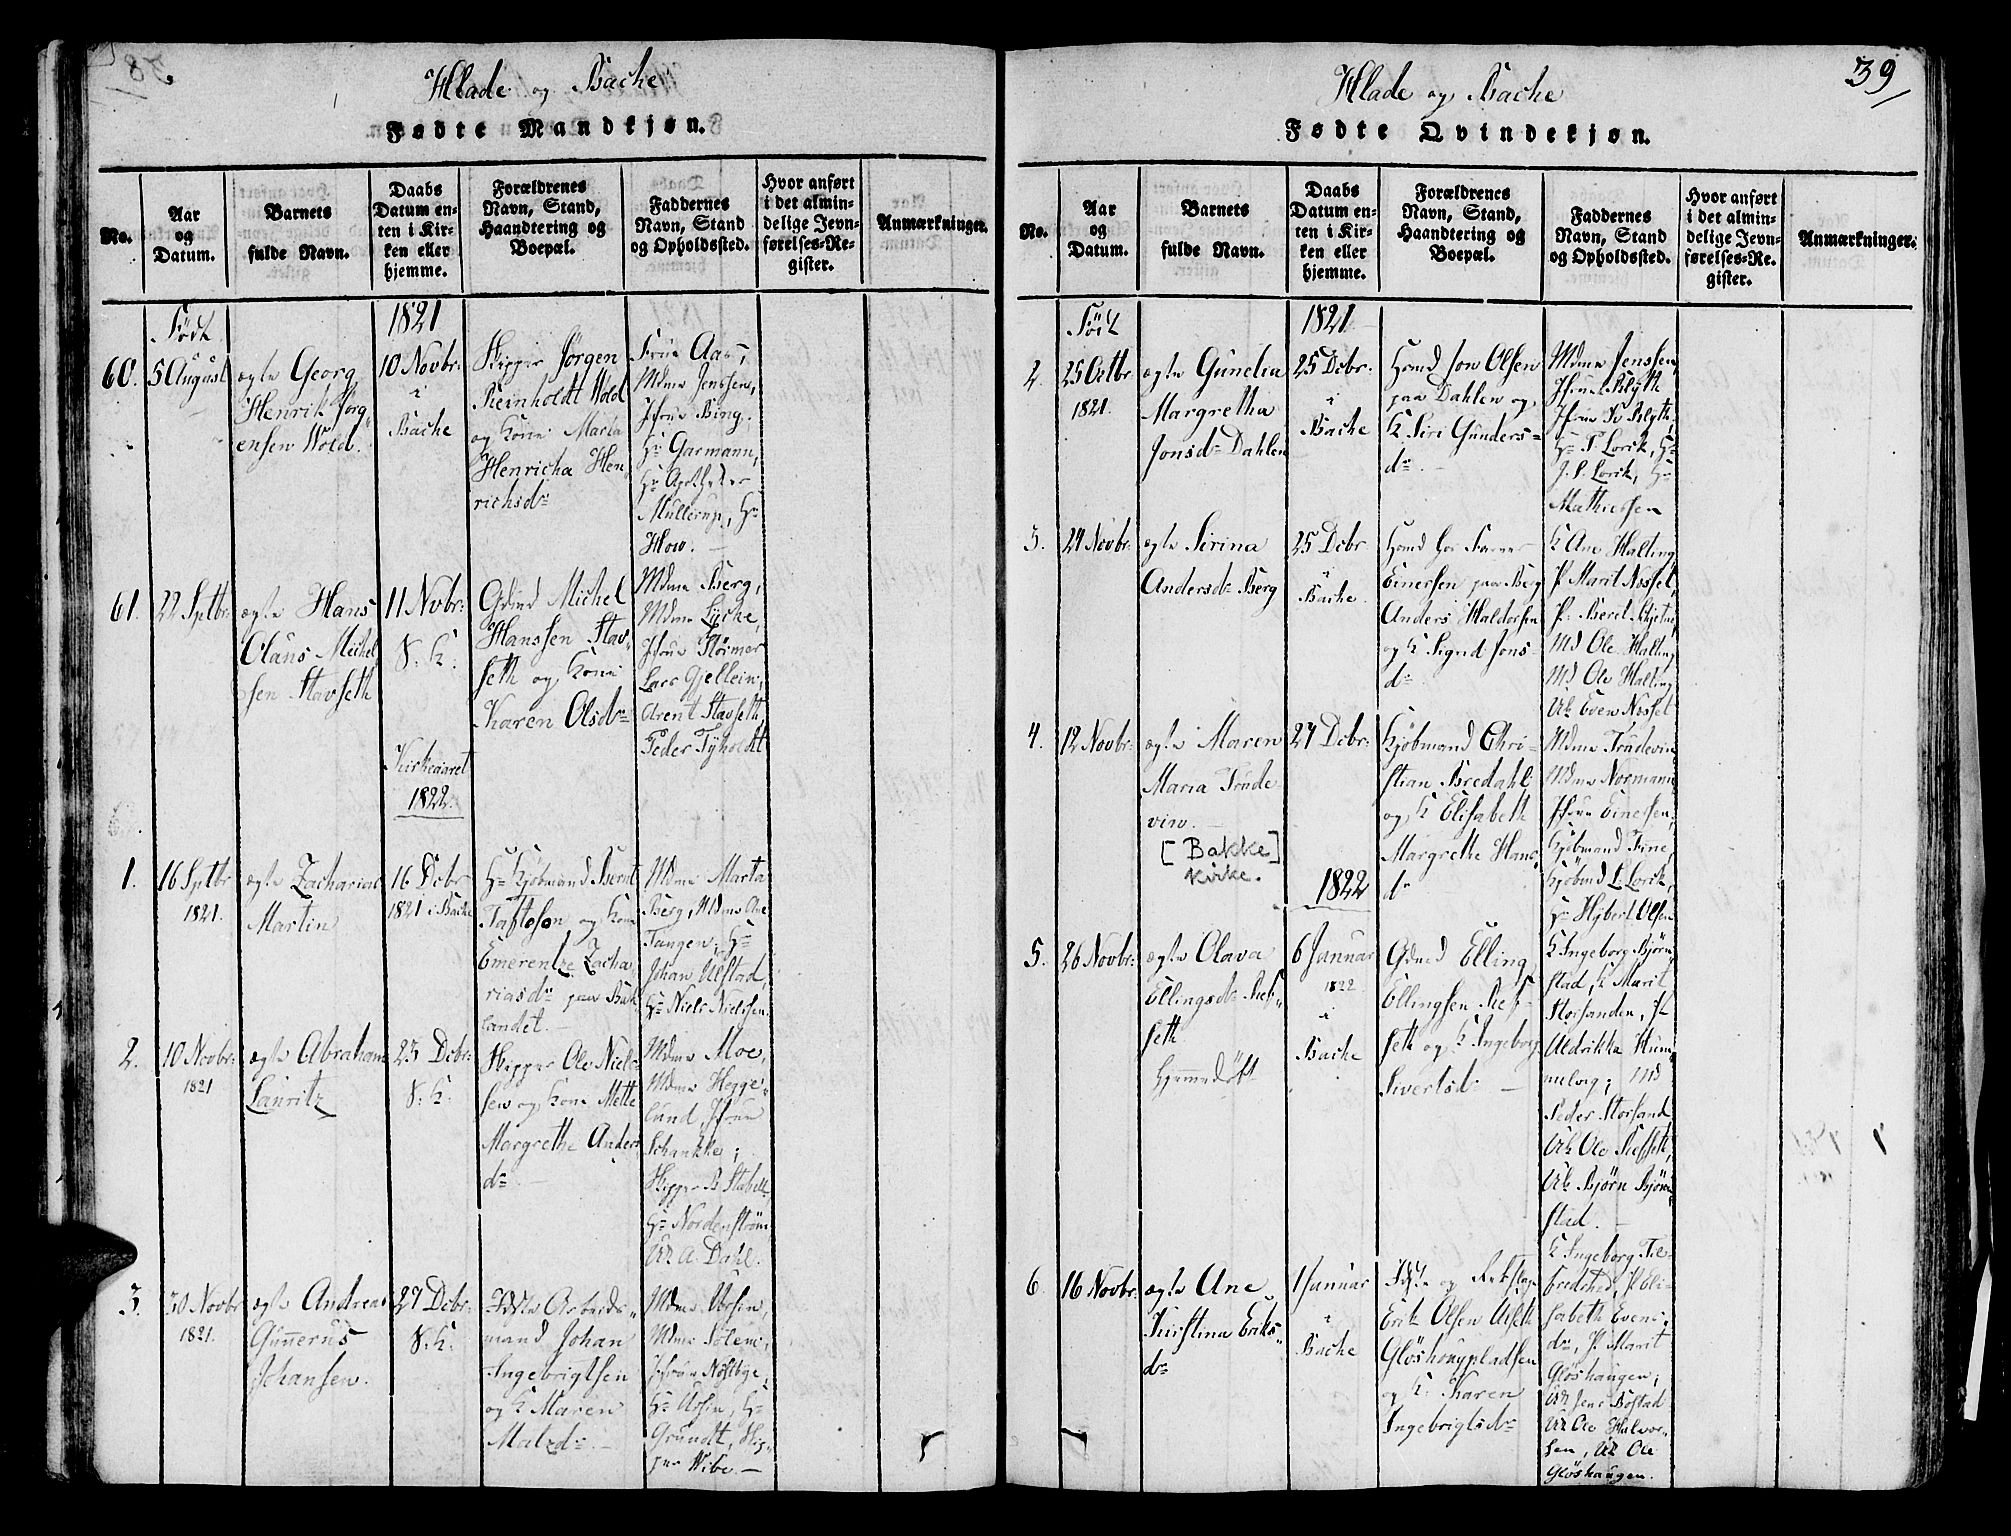 38
Hlade og Bache
Fødte Mandkjøn.
No.
Aar
og
Datum.
Barnets
fulde Navn.
Daabs
Datum en-
ten i Kir-
ken eller
hjemme.
Forældrenes
Navn, Stand,
Haandtering og
Boepæl.
Faddernes
Navn, Stand
og Opholdssted.
Hvor anført
i det almin-
delige Jevn-
førelses-Re-
gister.
Anmærkninger.
Født
1821
60.
5 August
ægte Georg
Henrik Jørg
ensen Wold.
10 Novbr:
i
Bache
Skipper Jørgen
Reinholdt Wold
og Kone Maria
Henricha Hen
richsdr
Frue Aas,
Mdme Jenssen,
Jfrue Bing,
Hr Garmann,
Hr Apotheker
Müllerup, Hr
How.
61.
22 Sptbr:
ægte Hans
Olaus Michel
sen Stavseth
11 Nvbr:
V. K.
Gdmd Michel
Hanssen Stav-
seth og Kone
Karen Olsdr
Mdme Berg,
Mdme Lyche,
Jfrue Størmer
Lars Gjellein,
Arent Stavseth,
Peder Tyholdt
Kirkeaaret
1822.
1.
16 Sptbr
1821.
ægte Zacharias
Martin
16 Dcbr
1821 i Bache
Hr Kjøbmand Bernt
Toftosen og Kone
Emerentze Zacha
riasdr paa Bak
landet.
Mdme Marta
Berg, Mdme Ane
Tangen, Hr
Johan Ulstad,
Hr Niels Nielsen.
2.
10 Novbr:
1821
ægte Abraham
Lauritz
23 Dcbr:
V. K.
Skipper Ole Niel-
sen og Kone Mette
Margrethe Anders
dr
Mdme Moe,
Mdme Hegge-
lund, Jfrue
Schankke;
Skipper B Stabell,
Hr Nordenstrøm
Uk A. Dahl.
3.
30 Novbr
1821.
ægte Andreas
Gunerus
Johansen.
27 Dcbr:
V. K.
Arbeids-
mand Johan
Ingebrigtsen
og K Maren
Matzdr
Mdme Ursin,
Mdme Solem,
Jfrue
Hr Ursin, Hr
Grundt, Skip-
per Wibe.
39
Hlade og Bache
Fødte Qvindekjøn.
No.
Aar
og
Datum.
Barnets
fulde Navn.
Daabs
Datum en-
ten i Kir-
ken eller
hjemme.
Forældrenes
Navn, Stand,
Haandtering og
Boepæl.
Faddernes
Navn, Stand
og Opholdssted.
Hvor anført
i det almin-
delige Jevn-
førelses-Re-
gister.
Anmærkninger.
Født
1821
2.
25 Octbr
1821.
ægte Gunelia
Margretha
Jonsdr Dahlen
25 Dcbr:
i
Bache
Jon Olsen
paa Dahlen og
K Siri Gunders-
dr
Mdme Jenssen
Jfrue Blyth
Jfrue Blyth,
Hr T Lorck, Hr
J. L. Lorck, Hr
Mathiessen
3.
24 Novbr:
ægte Sirina
Andersdr Berg
25 Dcbr
i
Bache
Einersen paa Berg
Anders Haldorsen
og K Signd Jons-
dr
K Ane Halting
P Marit Nosset,
P: Berel
Md Ole Halting
Md Ole Halting
Uk Even Nosset
4.
12 Novbr:
ægte Maren
Maria Trude
vin.
[Bakke]
kirke.
27 Dcbr:
Kjøbmand Chri-
stian Bredahl
og K Elisabeth
Margrethe Hans
dr
Mdme Trudevin
Mdme Normann
Jfrue Einersen,
Kjøbmand Trne,
Kjøbmd L: Lorck,
Hr Hybert Olsen
1822
5.
26 Novbr:
ægte Olava
Ellingsdr Ref-
seth
Hjemmedøbt
6 Januar
1822
i
Bache
Gdmd Elling
Ellingsen Ref-
seth og K Ingeborg
Sivertsdr
K Ingeborg Bjørn
stad, K Marit
Storsanden, P
Uldrikka Hum
melvig; Md
Peder Storsand
Uk Ole Refseth,
Uk Bjørn Bjørn
stad.
6.
16 Novbr:
ægte Ane
Kirstina Eriks-
dr
1 Januar
i
Bache
Erik Olsen Alseth
Gløshougpladsen
og K: Karen
Ingebrigtsdr
K Ingeborg Til-
fredshed, P Eli-
sabeth Evens
dr, P. Marit
Gløshaugen;
Uk Jens Bostad
Uk Ole Halvor-
sen, Uk Ole
Gløshaugen.